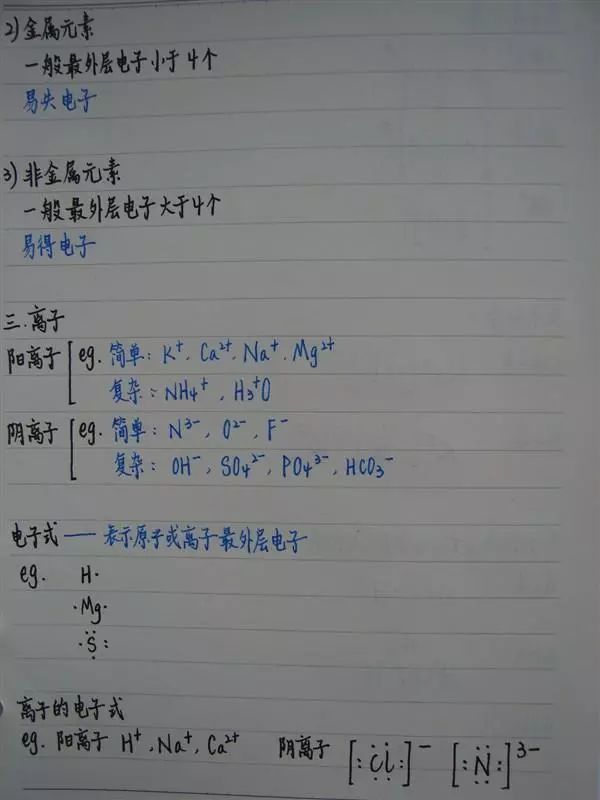 2) 金属元素
一般最外层电子小于4个
易失电子
3) 非金属元素
一般最外层电子大于4个
易得电子
三.离子
阳离子 [ eg. 简单: K⁺, Ca²⁺, Na⁺, Mg²⁺
复杂: NH₄⁺, H₃⁺O
阴离子 [ eg. 简单: N³⁻, O²⁻, F⁻
复杂: OH⁻, SO₄²⁻, PO₄³⁻, HCO₃⁻
电子式 —— 表示原子或离子最外层电子
eg. H·
·Mg·
·S:
离子的电子式
eg. 阳离子 H⁺, Na⁺, Ca²⁺ 阴离子 [:Cl:]⁻ [:N:]³⁻